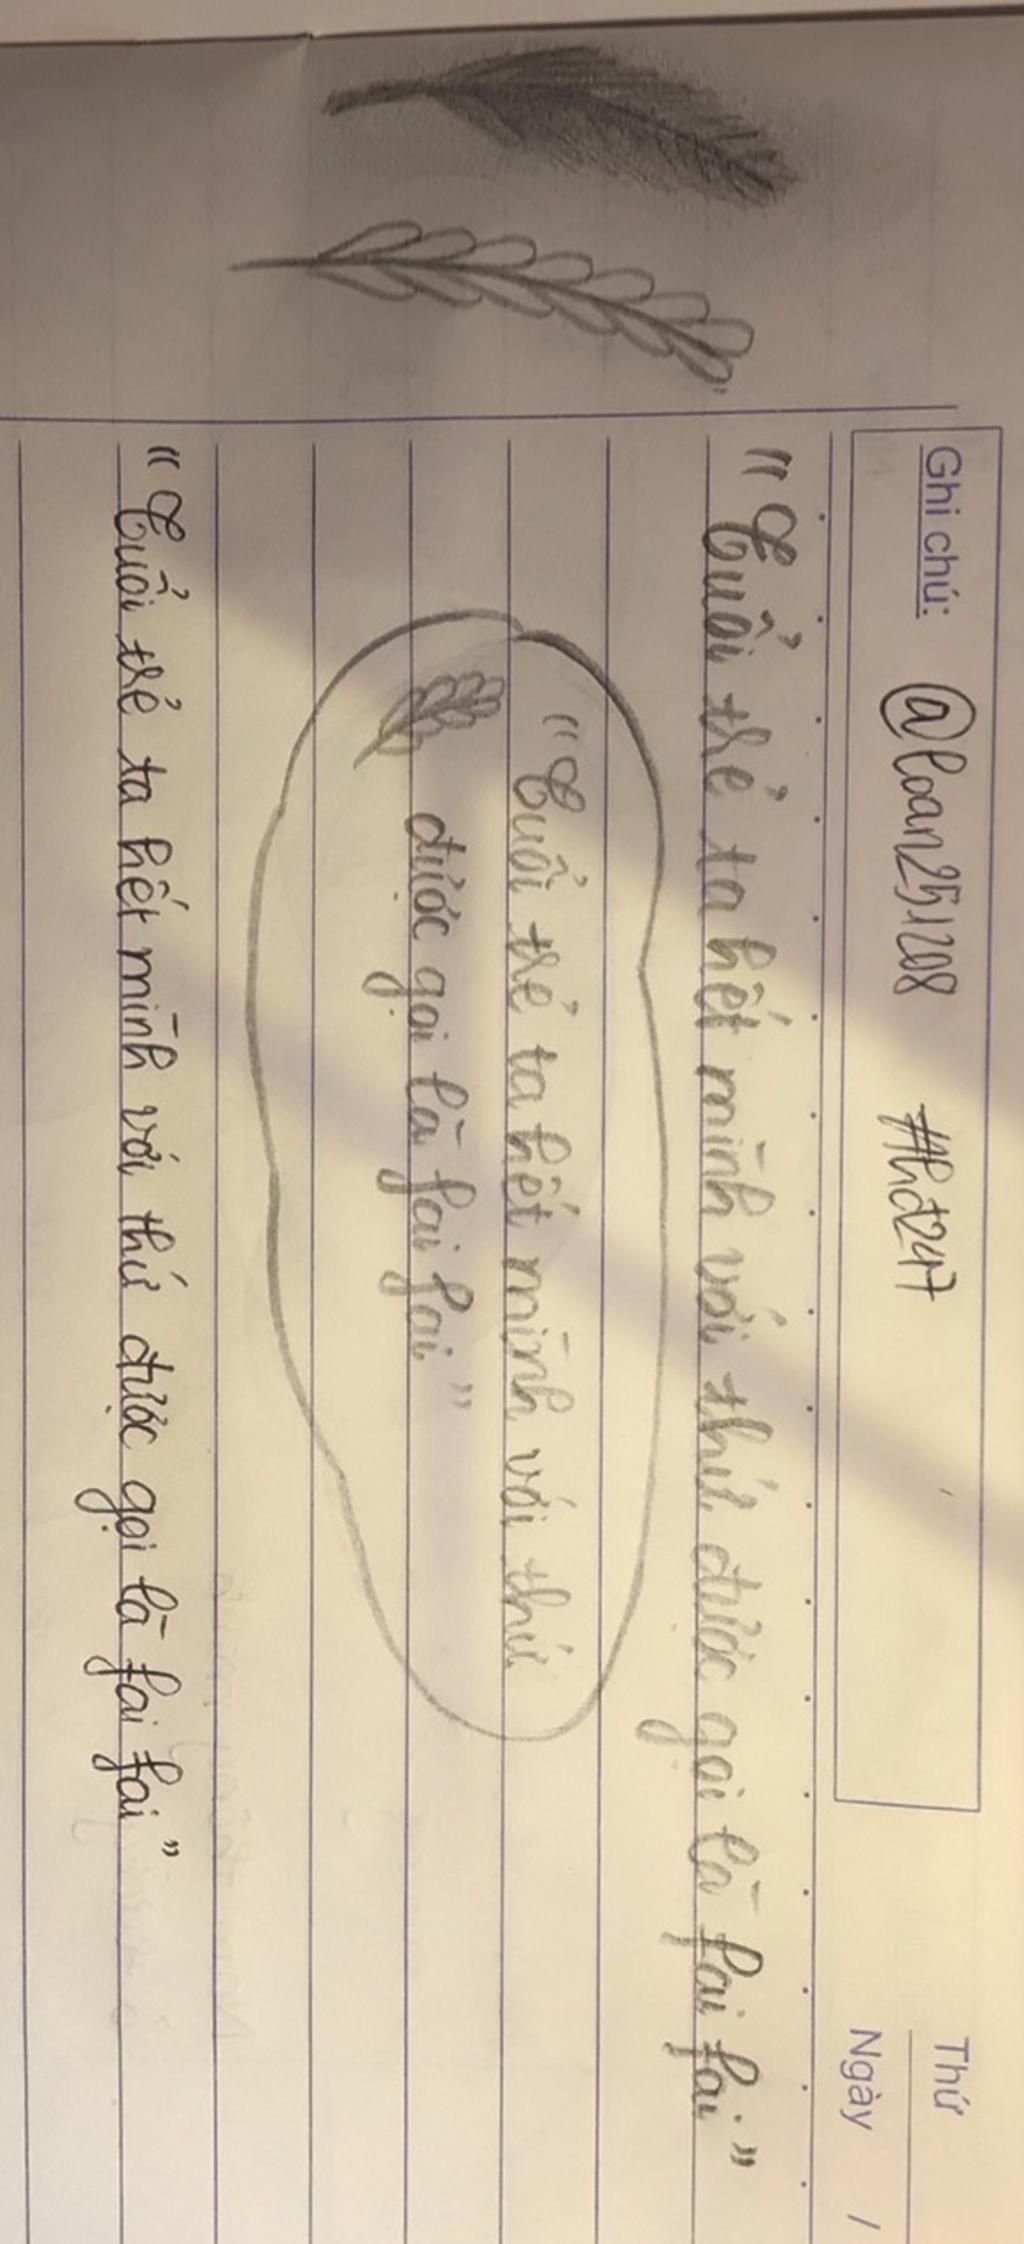 Ghi chú: @loan251208 #hđ247
Thứ
Ngày /
"Tuổi trẻ ta hết mình với thứ được gọi là fai fai"
"Tuổi trẻ ta hết mình với thứ
được gọi là fai fai"
"Tuổi trẻ ta hết mình với thứ được gọi là fai fai"